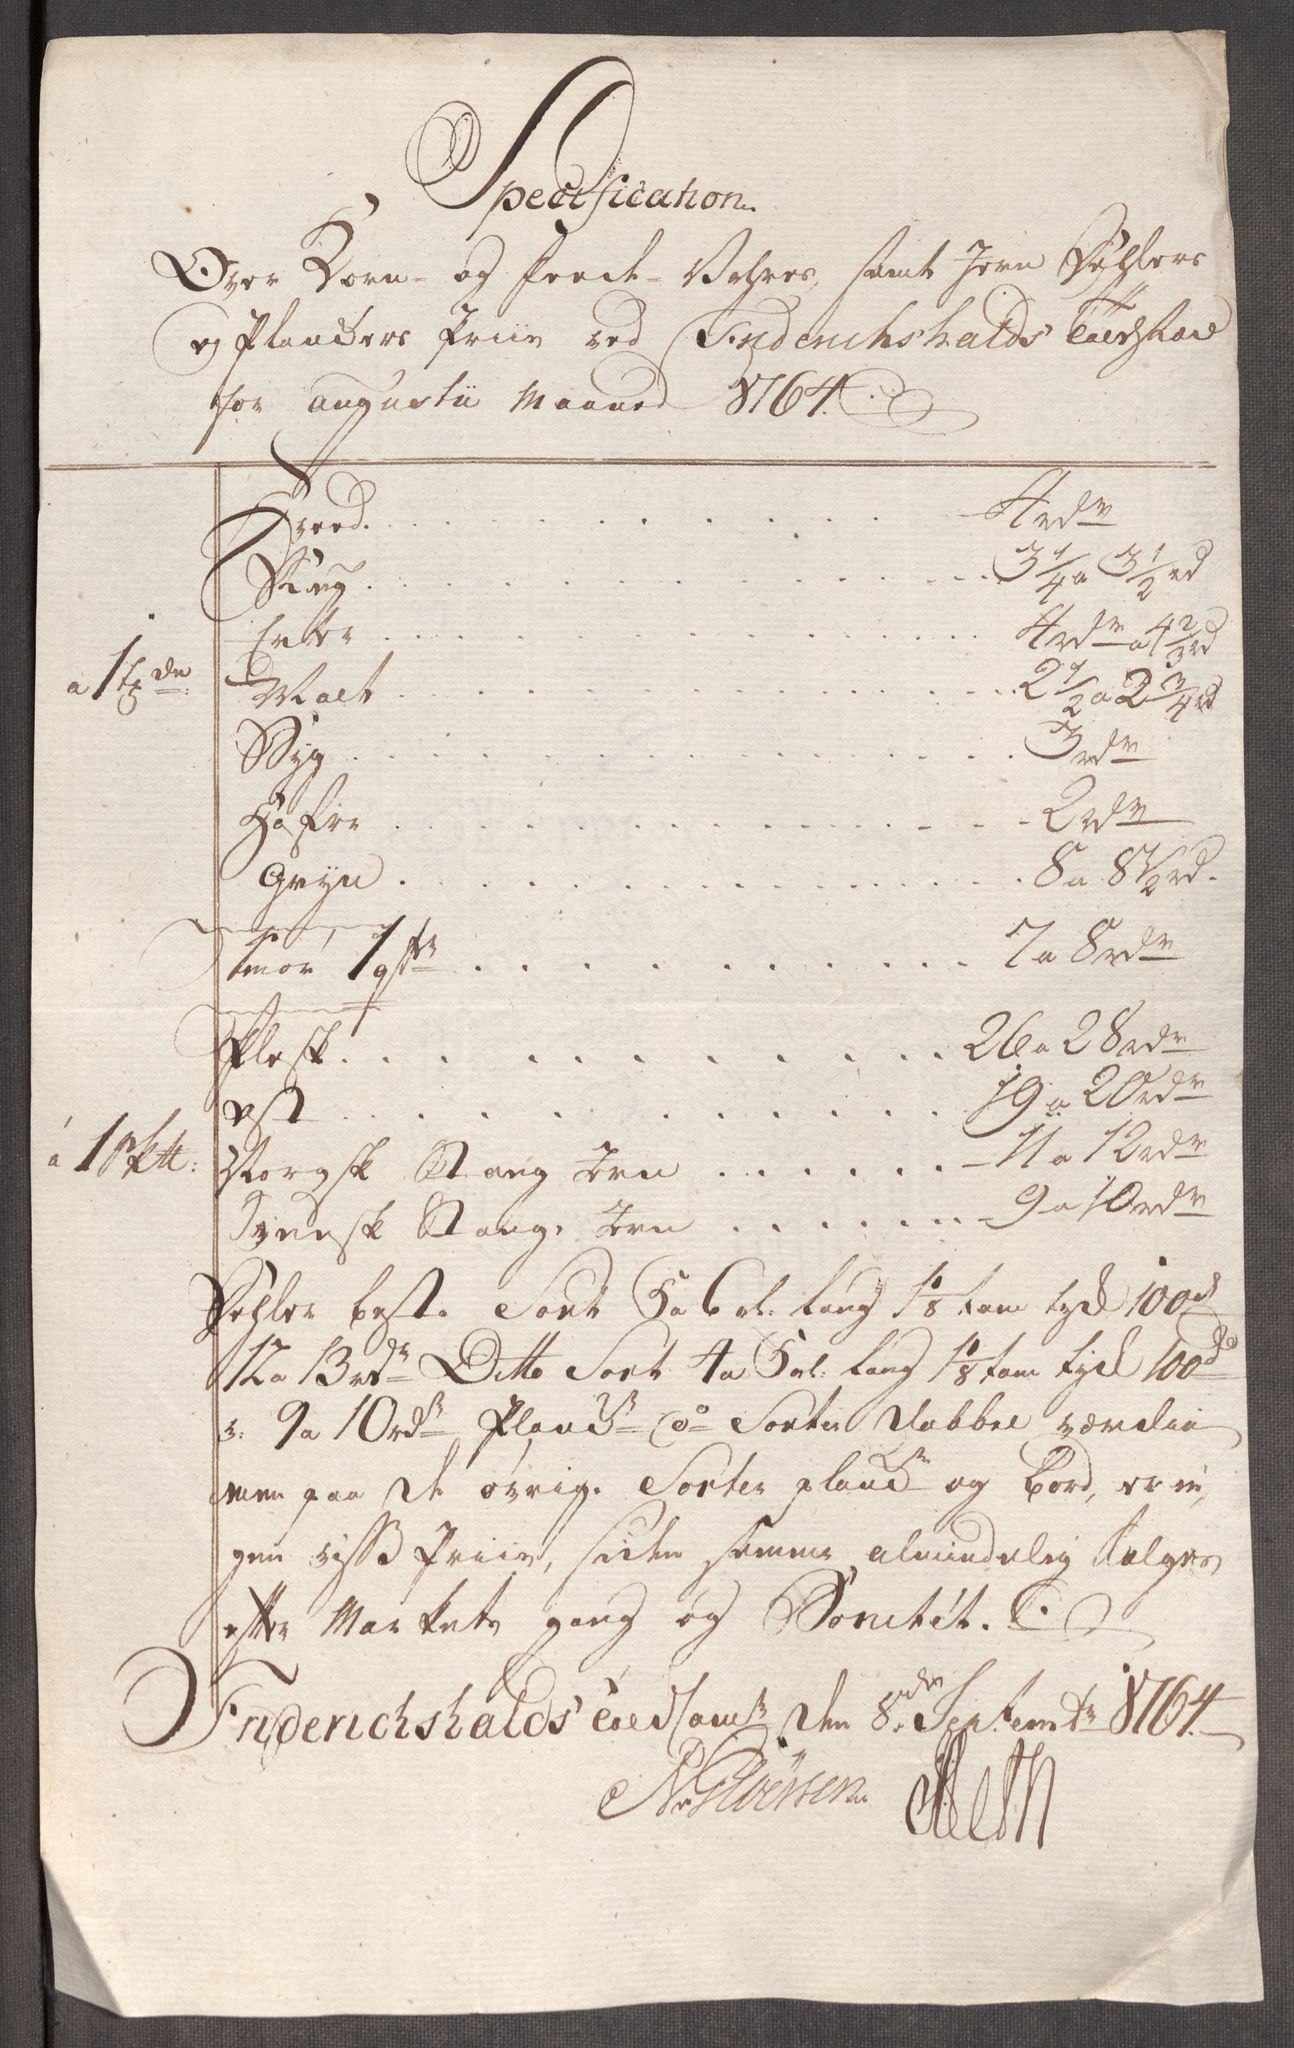 Specification
Over Korn- og feede-Vahres, samt Jern Dehlers
og Planckers Priis ved Friderichshalds Toldsted
for augustii Maaned 1764.
Hveed. 4 rdr
Rug. 3 1/4 a 3 1/2 rd
Erter 4 rdr a 4 2/3 rd
a 1 Tønde:
Malt 2 1/2 a 2 3/4 rd
Byg 3 rdr
Hafre 2 rdr
Gryn 8 a 8 1/2 rd.
Smør 1 7 a 8 rdr
Flesk 26 a 28 rdr
ost 19 a 20 rdr
á 1 Sk℔:
Norgsk Stang Jern 11 a 12 rdr
Svensk Stang Jern 9 a 10 rdr
Dehler beste Sort 5 a 6 al: lang 1 1/8 tom tyck 100d
12 a 13 rdr Ditto Sort 4 a 5 al: lang 1 1/8 tom tyck 100d
9 a 10 rdr Planckr do Sorter dobbel værdie
men paa de øvrige Sorter planckr og Bord, er in¬
gen visse Priis, siden samme almindelig sælges
efter Markets gang og Bonitét.
Friderichshalds Toldcamr den 8de Septembr 1764.